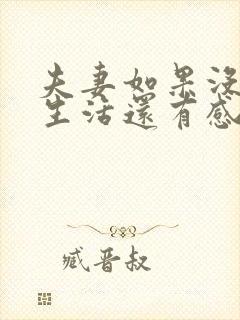 夫妻如果沒
生活還有感
臧晋叔